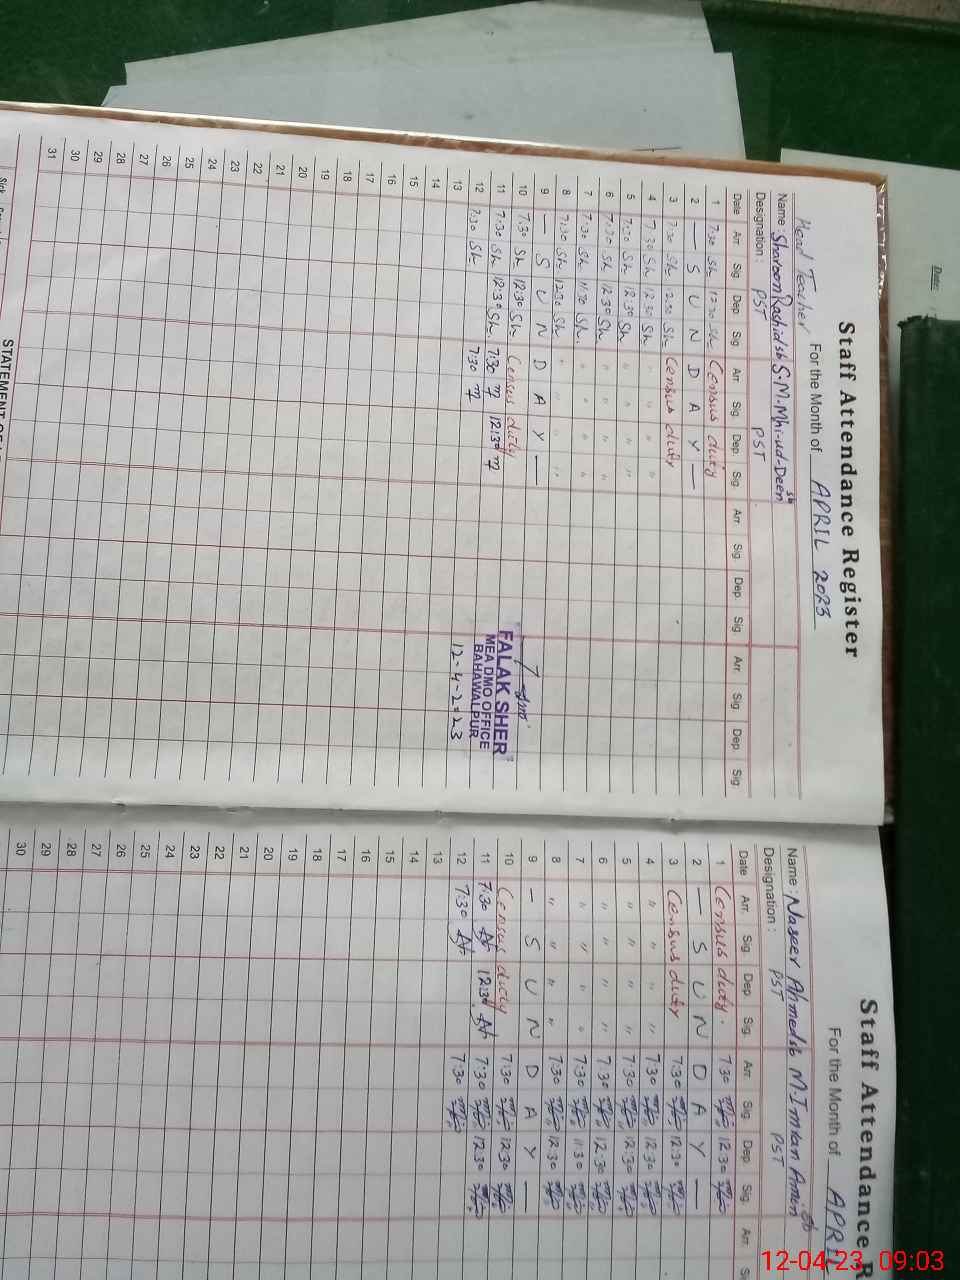 Staff Attendance Register
For the Month of APRIL 2023
Head Teacher
Name: Sharoon Rashid sb S.M.Mhi-ud-Deen sb
Designation: PST PST
Date Arr. Sig. Dep. Sig. Arr. Sig. Dep. Sig. Arr. Sig. Dep. Sig. Arr. Sig. Dep. Sig.
1 7:30 Sh 12:30 Sh Census duty
2 — S U N D A Y —
3 7:30 Sh 12:30 Sh Census duty
4 7:30 Sh 12:30 Sh " " " "
5 7:30 Sh 12:30 Sh " " " "
6 7:30 Sh 12:30 Sh " " " "
7 7:30 Sh 11:30 Sh " " " "
8 7:30 Sh 12:30 Sh " " " "
9 — S U N D A Y —
10 7:30 Sh 12:30 Sh Census duty
11 7:30 Sh 12:30 Sh 7:30 12:30
12 7:30 Sh 7:30
13
14
15
16
17
18
19
20
21
22
23
24
25
26
27
28
29
30
31
FALAK SHER
MEA DMO OFFICE
BAHAWALPUR
12-4-2023
STATEMENT OF
Date:
Staff Attendance R
For the Month of APRIL
Name: Naseer Ahmed sb M.Imran Amin sb
Designation: PST PST
Date Arr. Sig. Dep. Sig. Arr. Sig. Dep. Sig. Arr.
1 Census duty. 7:30 12:30
2 — S U N D A Y —
3 Census duty 7:30 12:30
4 " " " " 7:30 12:30
5 " " " " 7:30 12:30
6 " " " " 7:30 12:30
7 " " " " 7:30 11:30
8 " " " " 7:30 12:30
9 — S U N D A Y —
10 Census duty 7:30 12:30
11 7:30 12:30 7:30 12:30
12 7:30 7:30
13
14
15
16
17
18
19
20
21
22
23
24
25
26
27
28
29
30
12-04-23 09:03